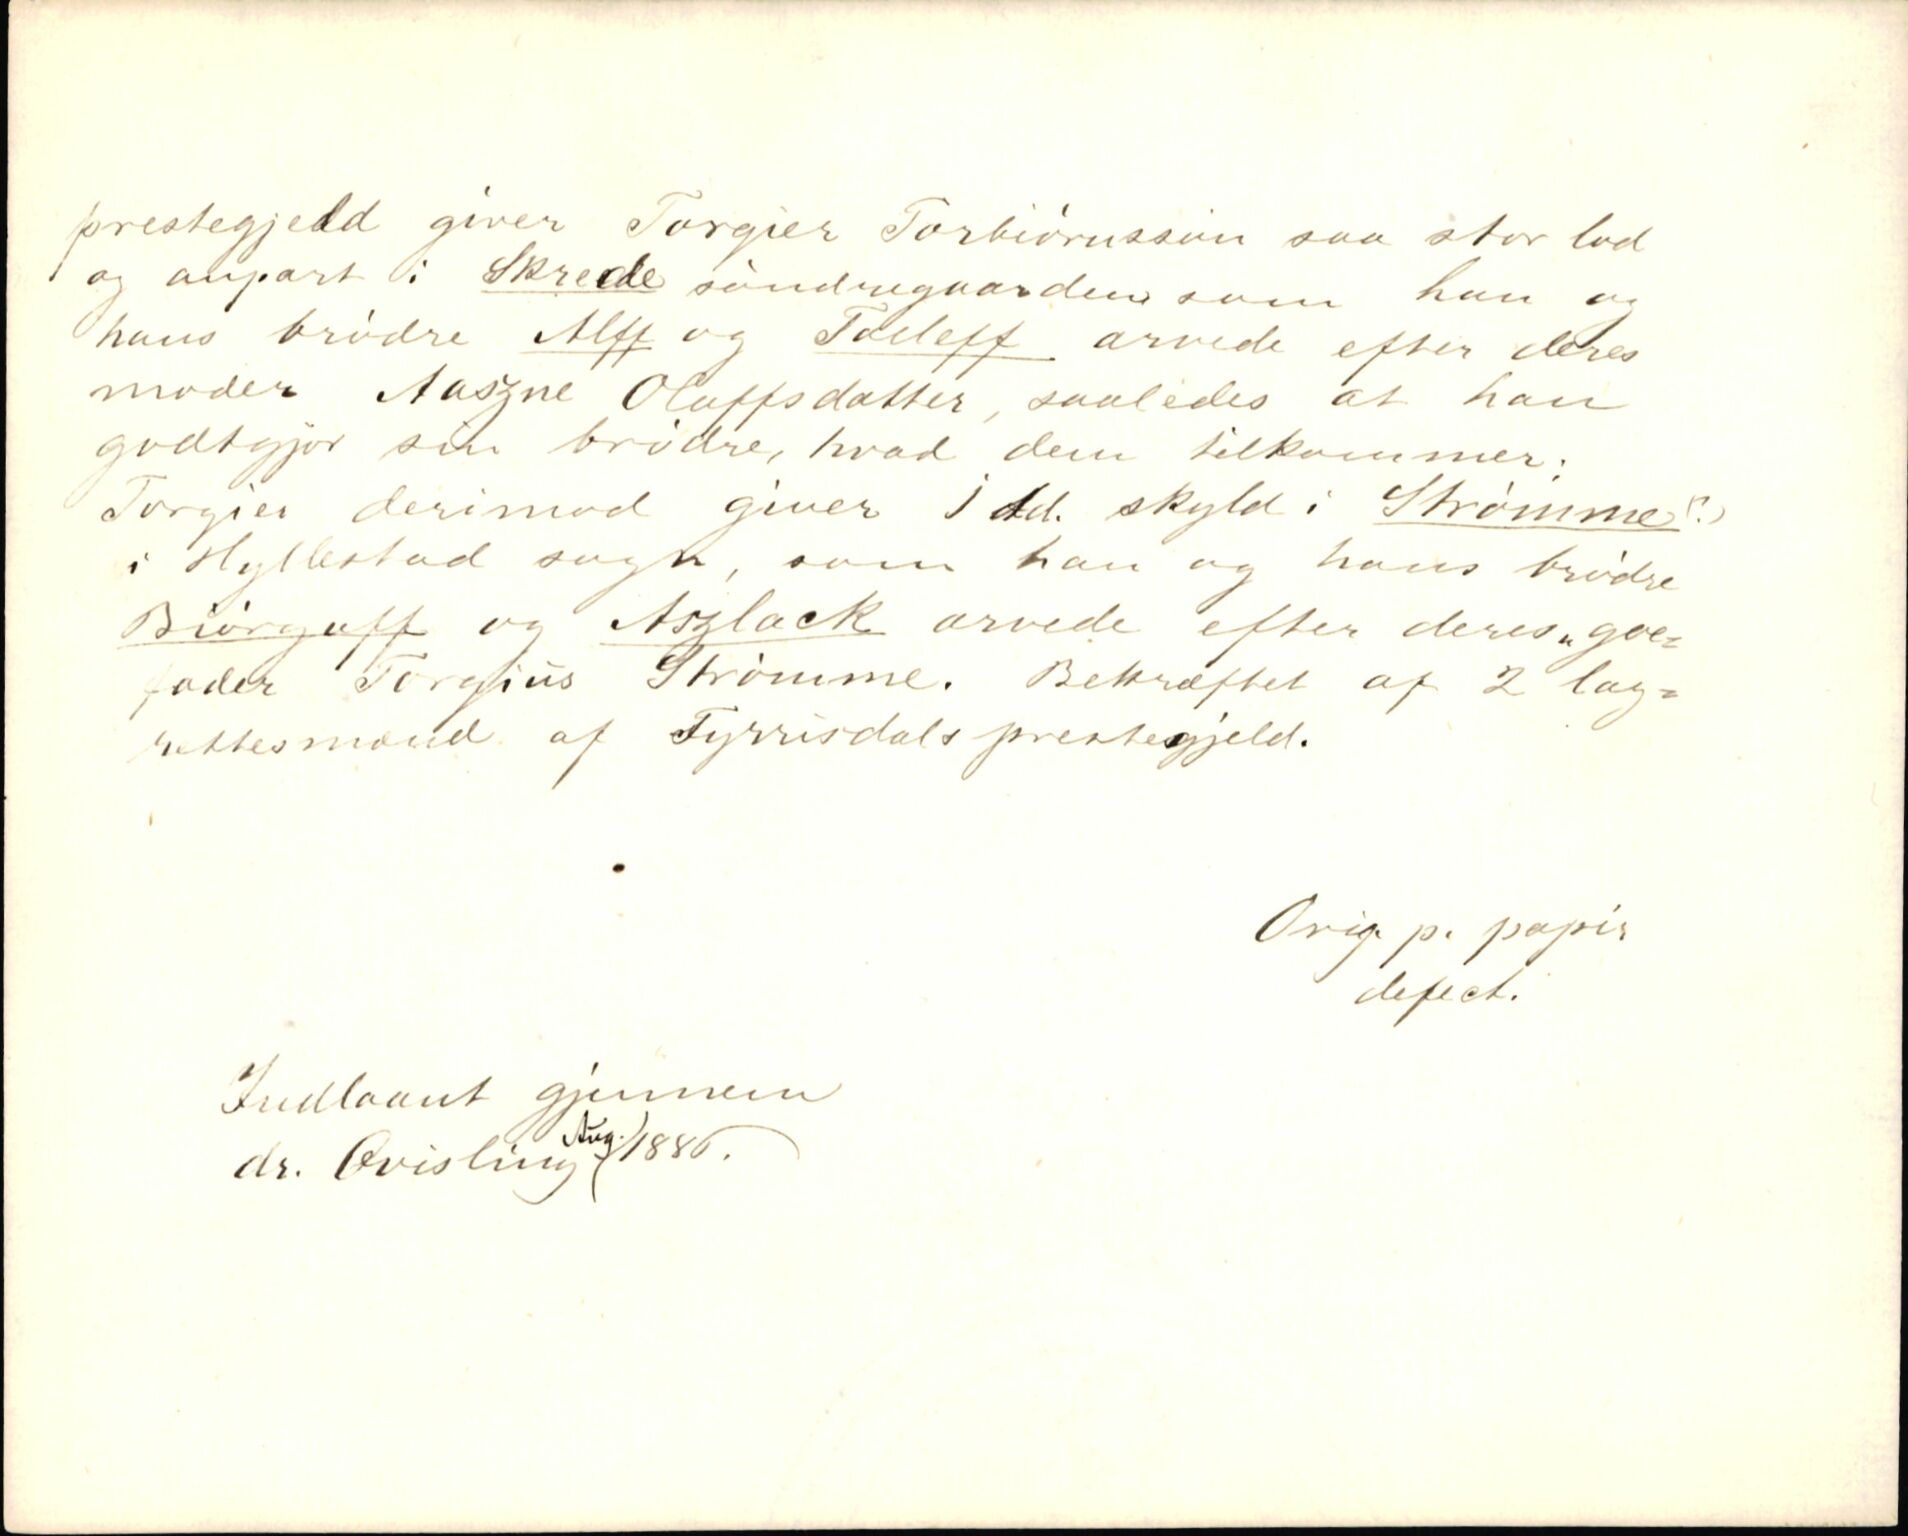 prestegjeld giver Torgier Torbiörnssøn saa stor lod
og anpart i Skrede söndregaarden som han og
hans brödre Alff og Tolleff arvede efter deres
moder Aaszne Oluffsdatter, saaledes at han
godtgjör sin brödre, hvad dem tilkommer.
Torgier derimod giver 1 td. skyld i Strömme (?)
i Hyllestad sogn, som han og hans brödre
Biörguff og Aszlack arvede efter deres „goe=
fader Torgius Strömme. Bekræftet af 2 lag=
rettesmænd af Tyrrisdals prestegjeld.
Orig. p. papir
defect.
Indlaant gjennem
dr. Qvisling Aug. 1886.